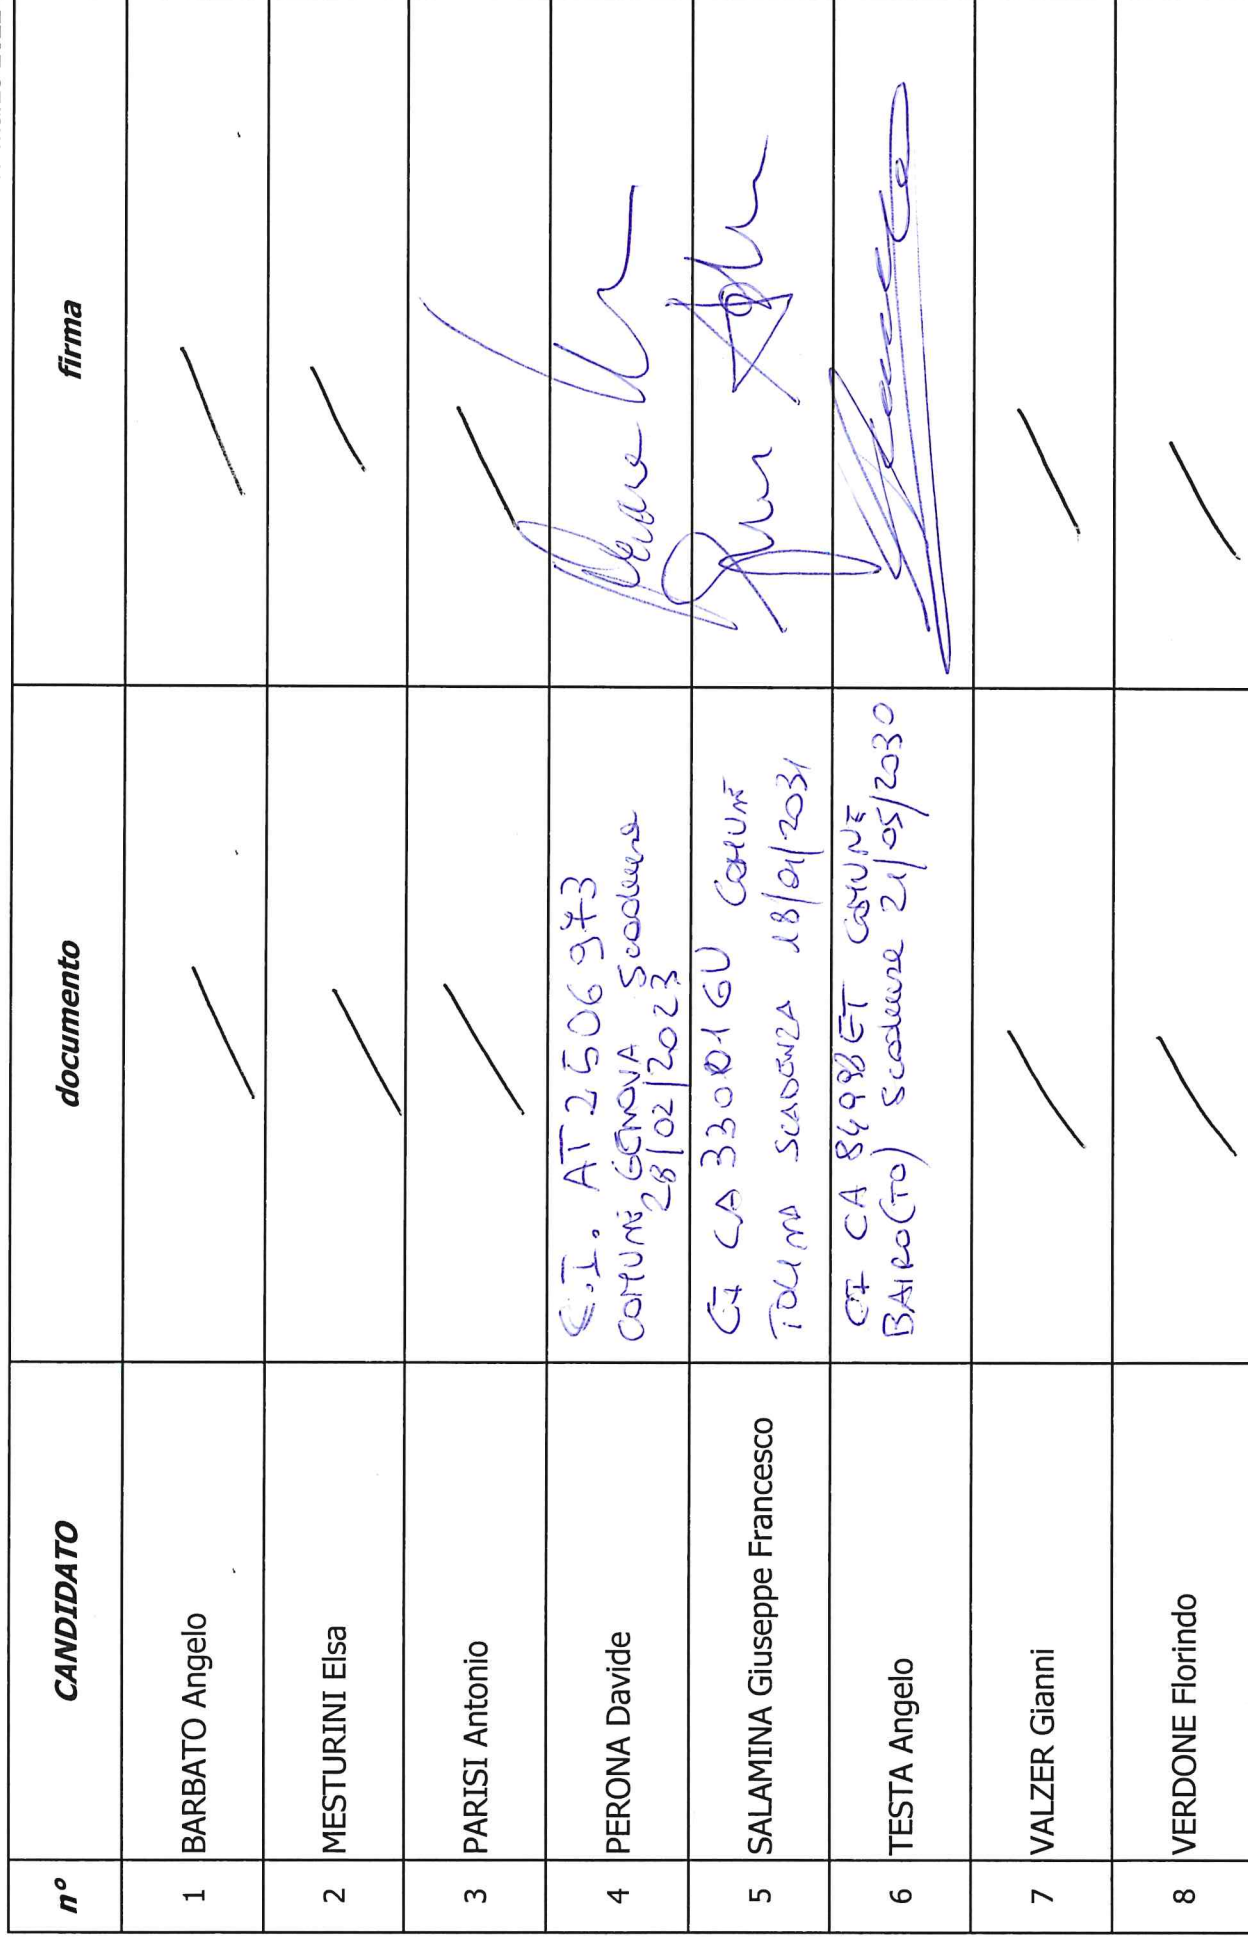 n° CANDIDATO documento firma
1 BARBATO Angelo
2 MESTURINI Elsa
3 PARISI Antonio
4 PERONA Davide
C.I. AT 2506973
COMUNE GENOVA Scadenza
28/02/2023
5 SALAMINA Giuseppe Francesco
CI CA 33001GU COMUNE
SCADENZA 18/01/2031
6 TESTA Angelo
CI CA 84998ET COMUNE
BAIRO (TO) Scadenza 21/05/2030
7 VALZER Gianni
8 VERDONE Florindo